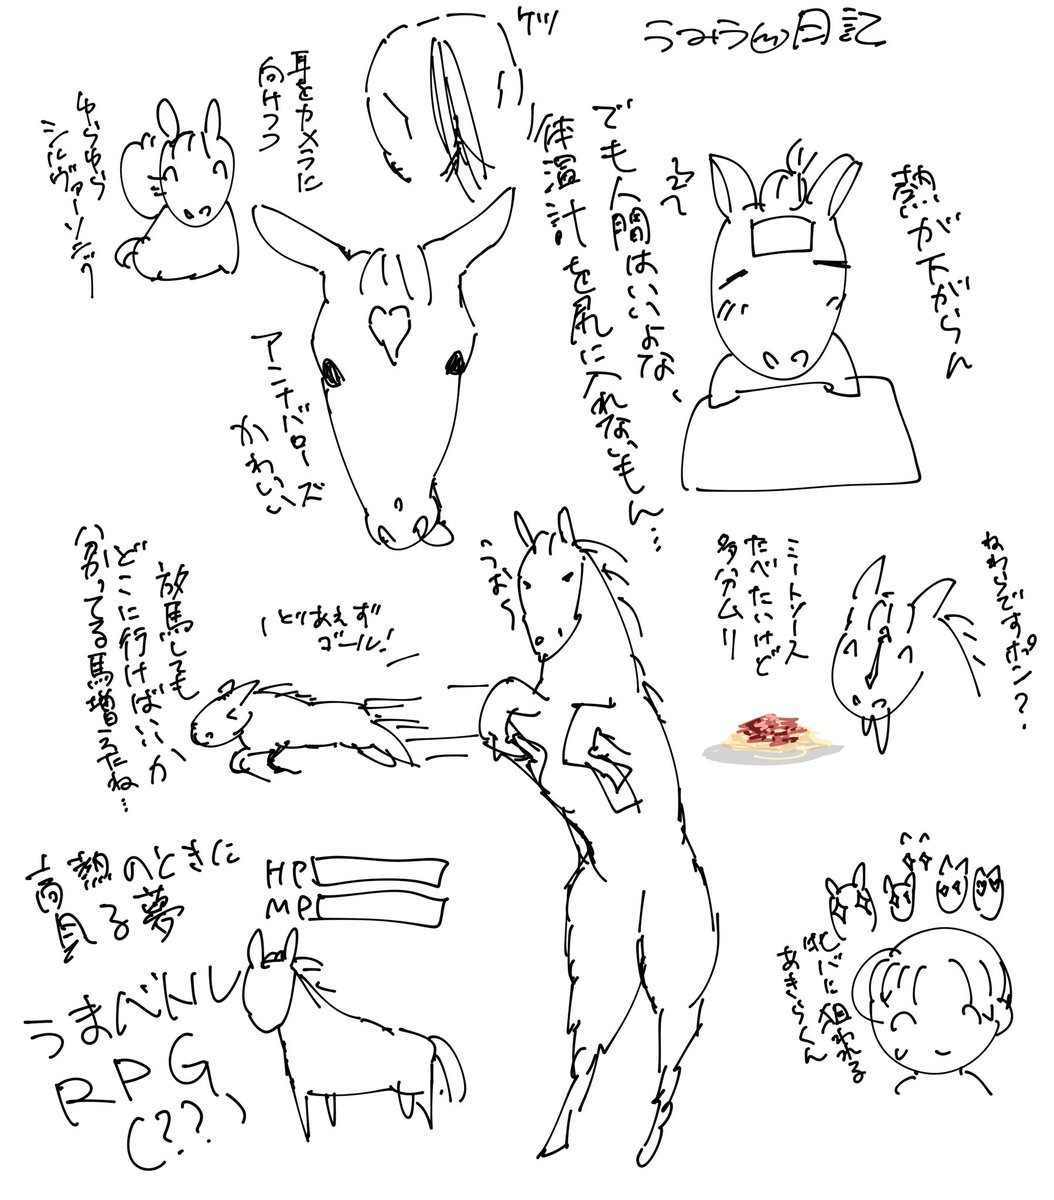 うみうま日記
熱が下がらん
でも人間はいいよな、
体温計を尻に入れないもん…
ケツ
耳をカメラに
向けつつ
ゆらゆら
シルヴァーソニック
アンナバローズ
かわいい
ねわらですポン?
ミートソース
たべたいけど
多分ムリ
うお〜
とりあえず
ゴール!
放馬しても
どこに行けばいいか
分かってる馬増えたね…
高熱のときに
見る夢
HP
MP
うまバトル
RPG
(??)
牝バに狙われる
あきらくん